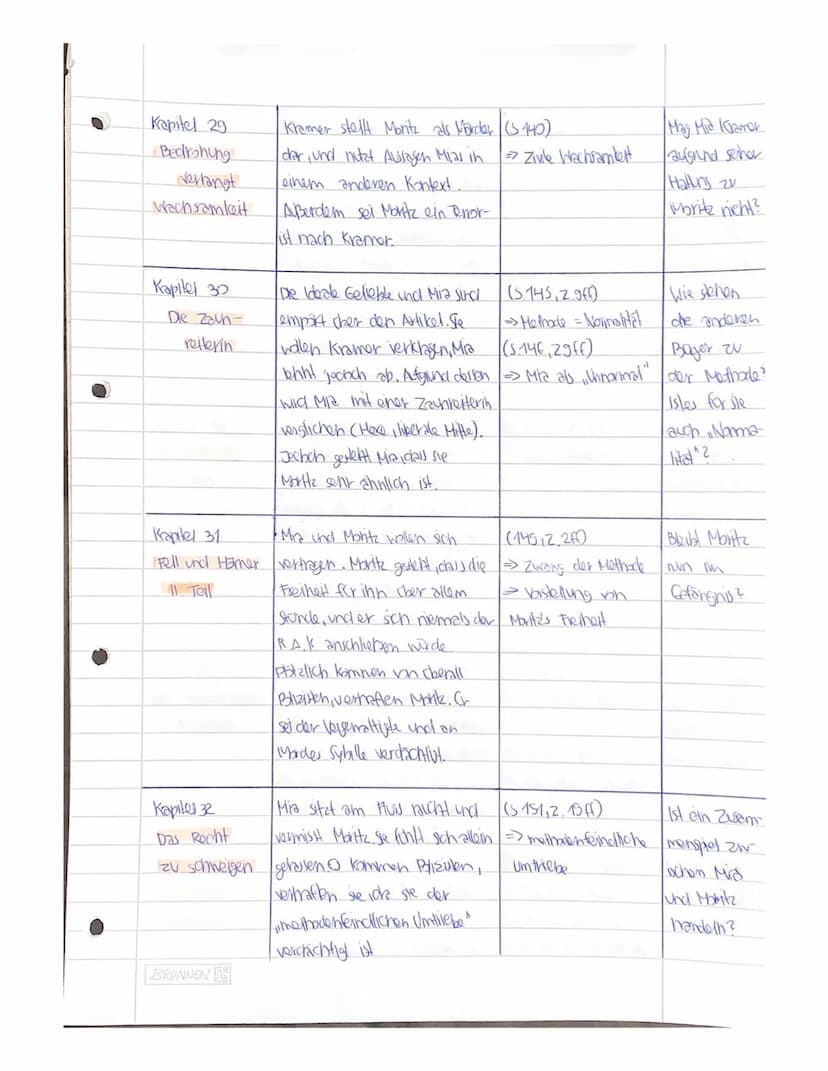 Kapitel 29
Bedrohung
verlangt
Wachsamkeit
Kramer stellt Moritz als Mörder
dar, und nutzt Aussagen Mias in
einem anderen Kontext.
Außerdem sei Moritz ein Terror-
ist nach Kramer.
(S 140)
⇒ Zivile Wachsamkeit
Mag Mia Kramer
aufgrund seiner
Haltung zu
Moritz nicht?
Kapitel 30
Die Zaun-
reiterin
Die Ideale Geliebte und Mia sind
empört über den Artikel. Sie
wollen Kramer verklagen, Mia
lehnt jedoch ab. Aufgrund dessen
wird Mia mit einer Zaunreiterin
verglichen (Hexe, Mitte).
Jedoch gesteht Mia, dass sie
Moritz sehr ähnlich ist.
(S 145, Z. 9ff)
⇒ Methode = Normalität
(S 146, Z9ff)
⇒ Mia als „Unnormal"
Wie stehen
die anderen
Bürger zu
der Methode?
Ist es für sie
auch „Norma-
lität"?
Kapitel 31
Fell und Hörner
II Teil
Mia und Moritz wollen sich
vertragen. Moritz gesteht, dass die
Freiheit für ihn über allem
stünde, und er sich niemals der
R.A.K anschließen würde
Plötzlich kommen von überall
Polizisten, verhaften Moritz. Er
sei der Vergewaltigte und an
Mordes Sybille verdächtigt.
(149, Z. 2ff)
⇒ Zwang der Methode
⇒ Vorstellung von
Moritz's Freiheit
Bleibt Moritz
nun im
Gefängnis?
Kapitel 32
Das Recht
zu schweigen
Mia sitzt am Fluss raucht und
vermisst Moritz. Sie fühlt sich allein
gelassen. kommen Polizisten,
verhaften sie, da sie der
„methodenfeindlichen Umtriebe"
verdächtigt ist
(S 151, Z. 19ff)
⇒ methodenfeindliche
Umtriebe
Ist ein Zusam-
menspiel zwi-
schen Mia
und Moritz
handeln?
BRUNNEN